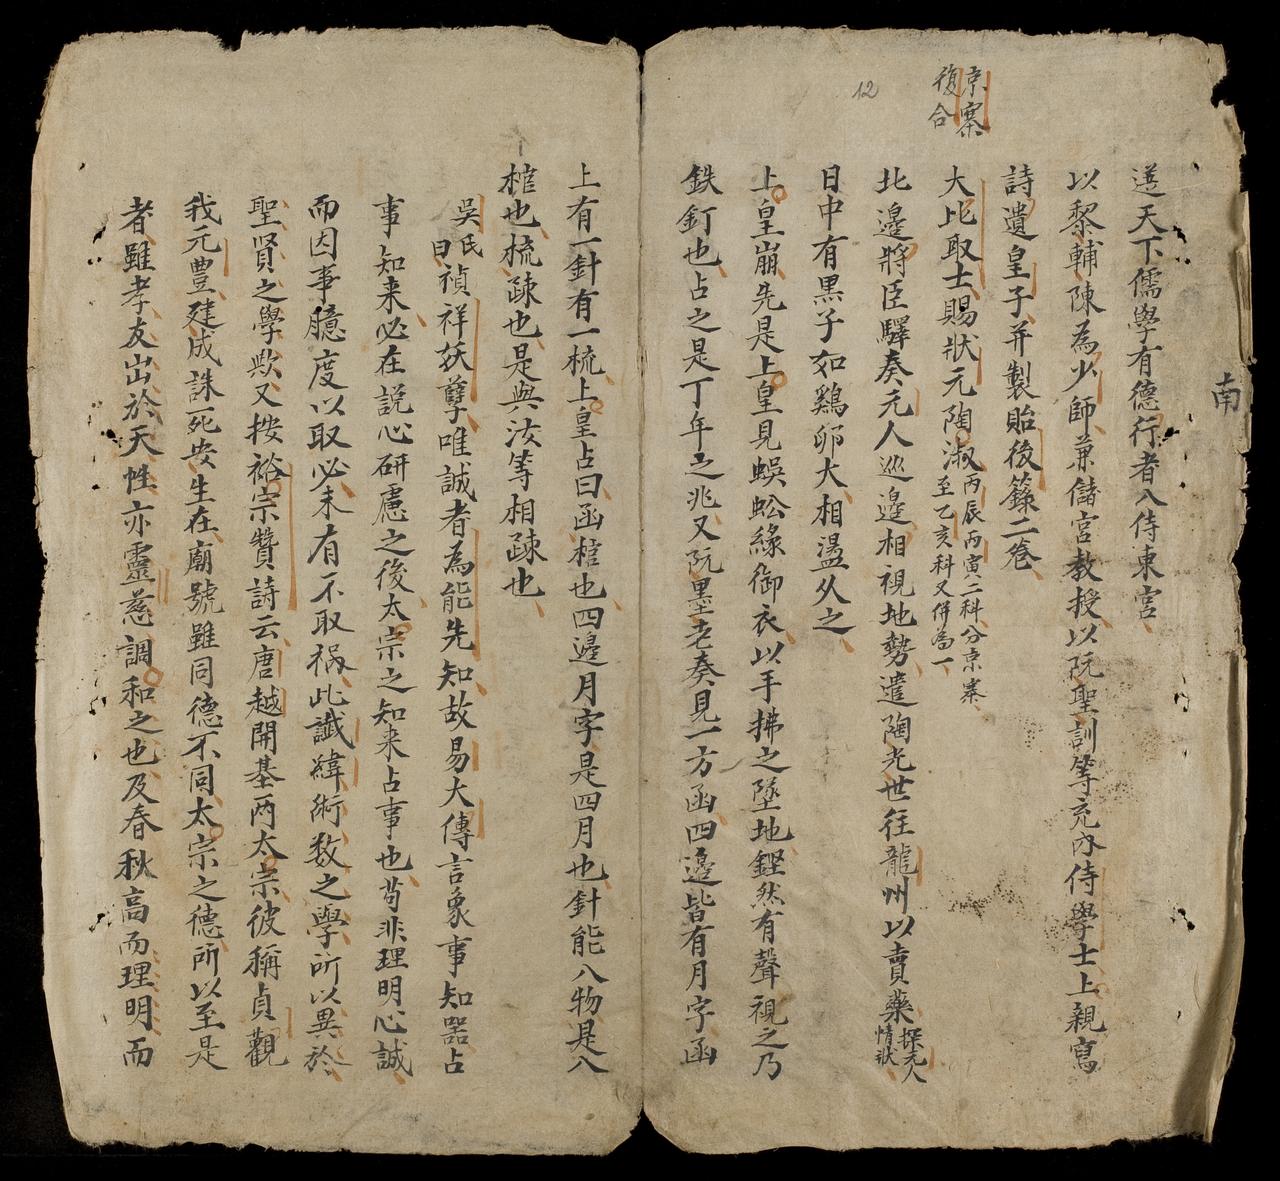 南
京寨
復合
12
送天下儒學有德行者入侍東宮
以黎輔陳為少師兼儲宮教授以阮聖訓等充內侍學士上親寫
詩遺皇子并製貽後籙二卷
大比取士賜狀元陶淑丙辰丙寅二科分京寨至乙亥科又併為一
北邊將臣驛奏元人巡邊相視地勢遣陶光世往龍州以賣藥探元人情狀
日中有黑子如鷄卵大相盪久之
上皇崩先是上皇見蜈蚣緣御衣以手拂之墜地鏗然有聲視之乃
鉄釘也占之是丁年之兆又阮墨老奏見一方函四邊皆有月字函
上有一針有一梳上皇占曰函棺也四邊月字是四月也針能入物是入
棺也梳疎也是與汝等相疎也
吳氏曰禎祥妖孽唯誠者為能先知故易大傳言象事知器占
事知来必在説心研慮之後太宗之知来占事也苟非理明心誠
而因事臆度以取必未有不取禍此讖緯術数之學所以異於
聖賢之學欤又按裕宗贊詩云唐越開基两太宗彼稱貞觀
我元豊建成誅死安生在廟號雖同德不同太宗之德所以至是
者雖孝友出於天性亦靈慈調和之也及春秋高而理明而